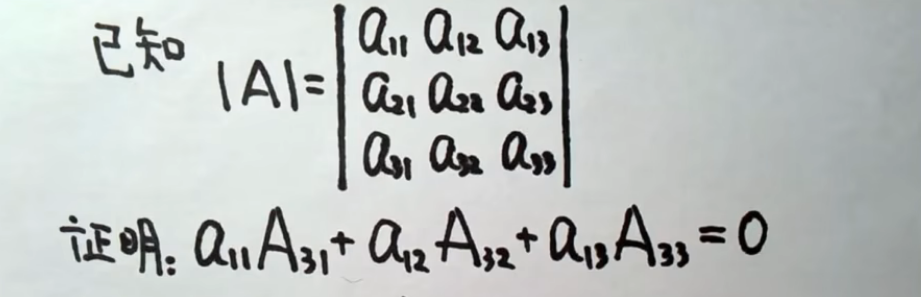 已知 |A|= | a₁₁ a₁₂ a₁₃ |
| a₂₁ a₂₂ a₂₃ |
| a₃₁ a₃₂ a₃₃ |
证明: a₁₁A₃₁+a₁₂A₃₂+a₁₃A₃₃=0